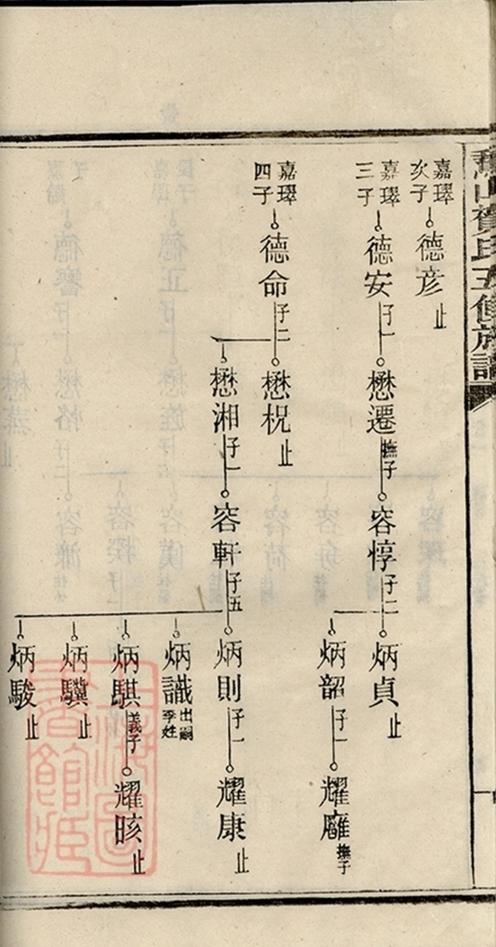 嘉㻶次子
德彦止
嘉㻶三子
德安子一
懋遷撫子
容惇子二
炳貞止
炳韶子一
耀廱撫子
嘉㻶四子
德命子二
懋柷止
懋湘子一
容軒子五
炳則子一
耀康止
炳識出嗣李姓
炳騏義子
耀晐止
炳驥止
炳駿止
賀氏五修族譜